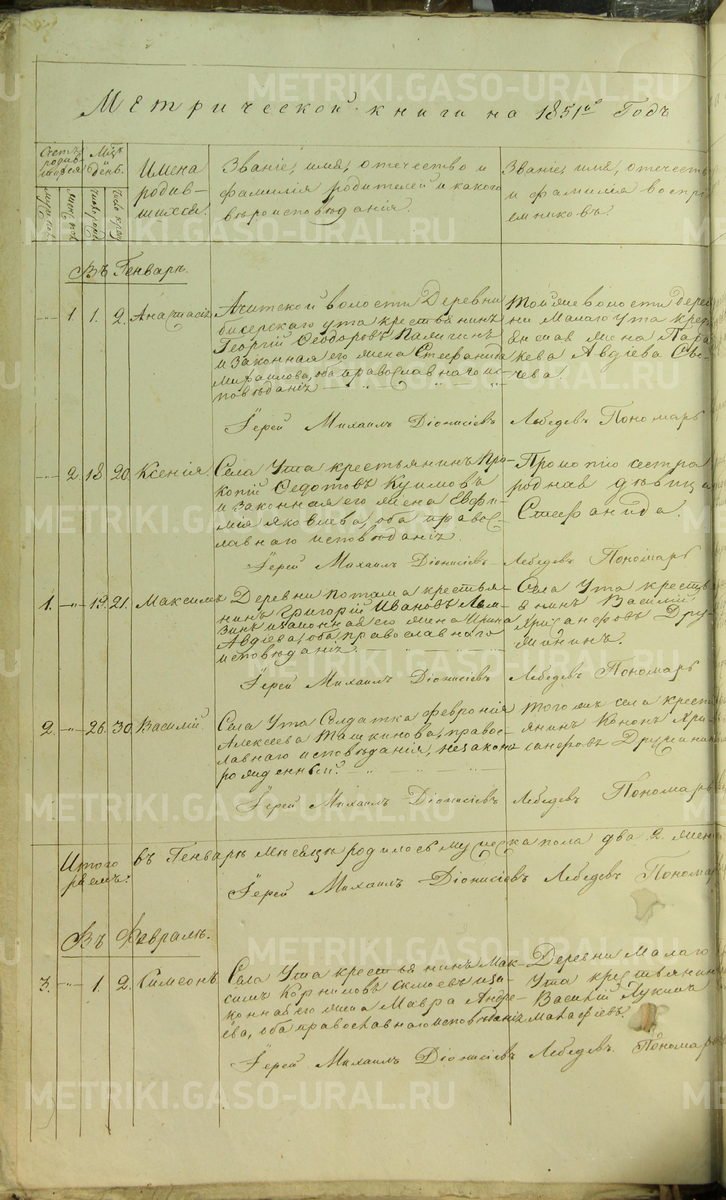 Метрической книги на 1851й Годъ
Счетъ родившихся
Мѣц. и день.
Имена родившихся.
Званіе, имя, отечество и
фамилія родителей и какого
вѣроисповѣданія.
Званіе, имя, отечест
и фамилія воспрі
емниковъ.
Въ Генварѣ.
1. 1. 2. Анастасія
Ачитской волости Деревни
бисерскаго ута крестьянинъ
Георгій Ѳеодоровъ
и законная его жена Стефанида
Михаилова, оба православнаго ис
повѣданія
Той же волости дерев
ни Малаго Ута крес
жена Пара
кева Авдіева
Іерей Михаилъ Діонисіевъ Лебедевъ Пономарь
2. 18 20. Ксенія.
Села Ута крестьянинъ Про
копій Ѳедотовъ
и законная его жена Евфи
мія Яковлева, оба правос
лавнаго исповѣданія
сестра
родная дѣвица
Стефанида.
Іерей Михаилъ Діонисіевъ Лебедевъ Пономарь
1. 19. 21. Максимъ
Деревни поташа крестья
нинъ Григорій Ивановъ
и законная его жена Ирина
Авдіева, оба православнаго
исповѣданія
Села Ута кресть
янинъ Василій
Хрисанфовъ Дру
жининъ.
Іерей Михаилъ Діонисіевъ Лебедевъ Пономарь
2. 26. 30. Василій.
Села Ута Солдатка феврония
Алексеева, правос
лавнаго исповѣданія, незакон
рожденный.
Того же села крест
янинъ Кононъ Хри
санфовъ Дружинин
Іерей Михаилъ Діонисіевъ Лебедевъ Пономарь
Итого въ Генварѣ мѣсяцѣ родилось мужеска пола два 2. жен
Іерей Михаилъ Діонисіевъ Лебедевъ Пономарь
Въ Февралѣ.
3. 1. 2. Симеонъ.
Села Ута крестьянинъ Мак
симъ Корниловъ и за
конная его жена Мавра Андре
ева, оба православнаго исповѣданія
Деревни Малаго
Ута крестьянин
Василій Лукинъ
Іерей Михаилъ Діонисіевъ Лебедевъ. Пономарь
METRIKI.GASO-URAL.RU